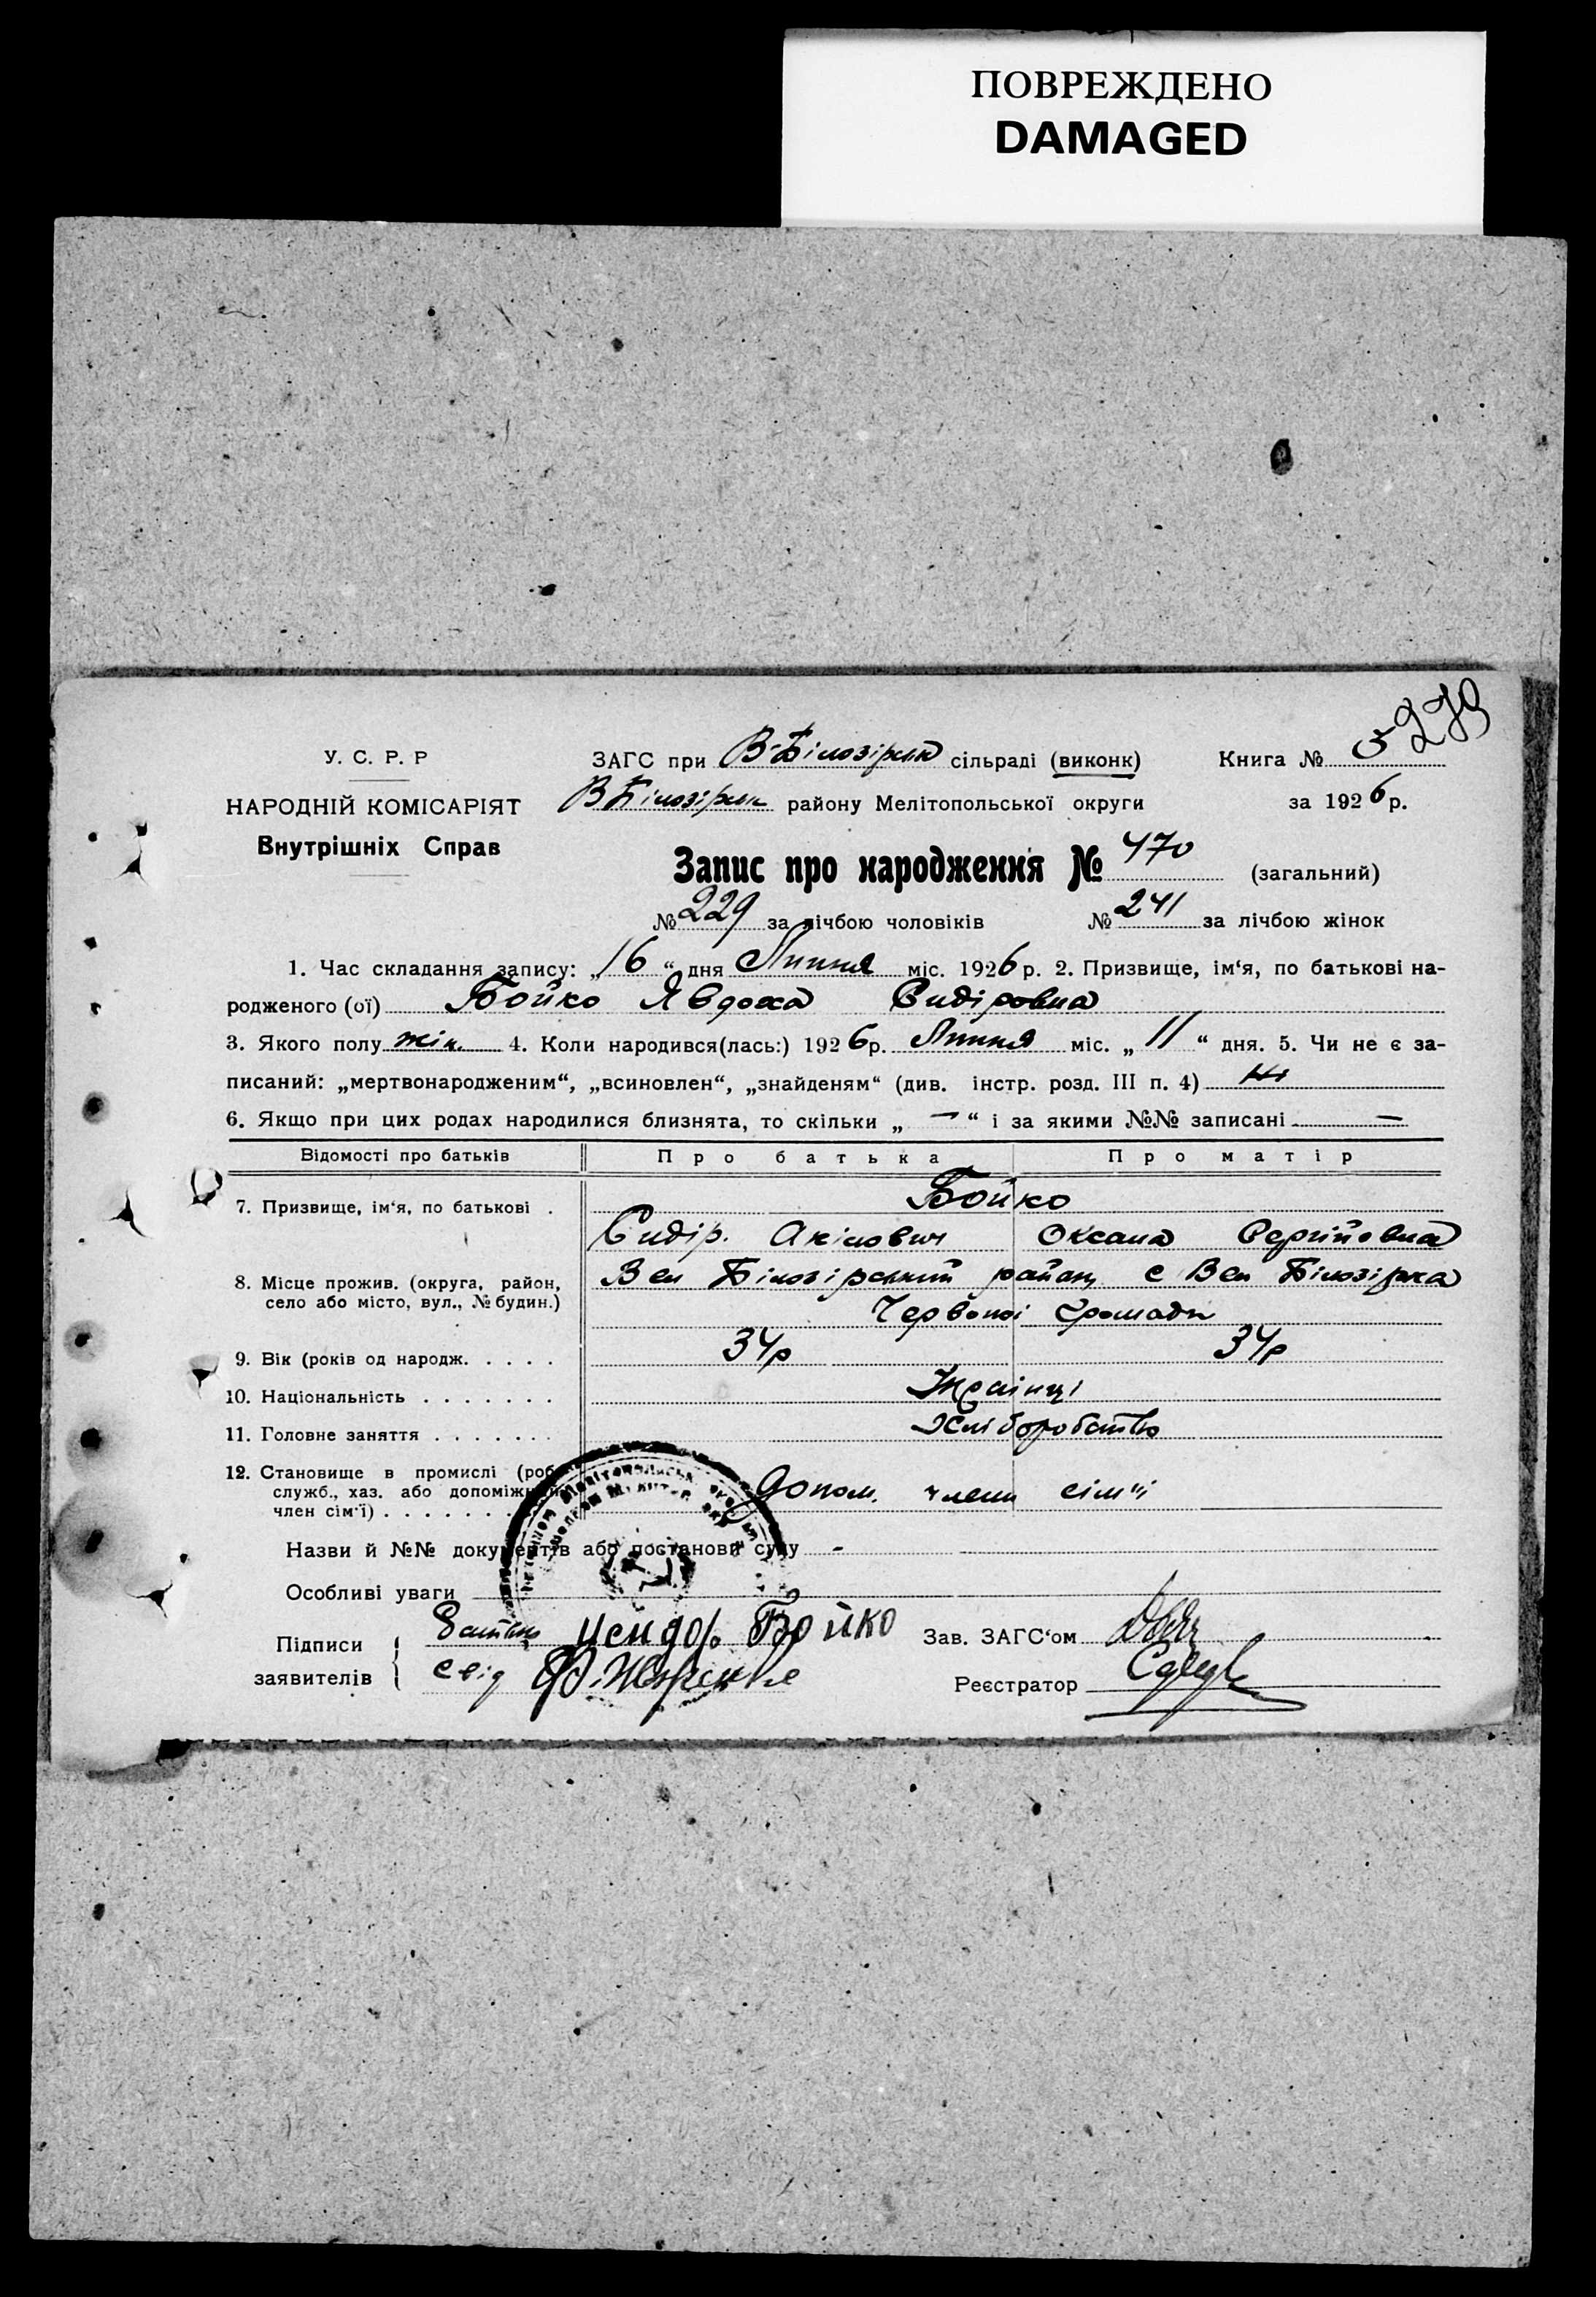 ПОВРЕЖДЕНО
DAMAGED
279
У. С. Р. Р
НАРОДНІЙ КОМІСАРІЯТ
Внутрішніх Справ
ЗАГС при В-Білозірськ сільраді (виконк)
В Білозірськ району Мелітопольської округи
Книга № 5
за 1926 р.
Запис про народження № 470 (загальний)
№ 229 за лічбою чоловіків № 241 за лічбою жінок
1. Час складання запису: „16“ дня Липня міс. 1926 р. 2. Призвище, ім‘я, по батькові на-
родженого (ої) Бойко Явдоха Сидіровна
3. Якого полу жін. 4. Коли народився(лась:) 1926 р. Липня міс. „11“ дня. 5. Чи не є за-
писаний: „мертвонародженим“, „всиновлен“, „знайденям“ (див. інстр. розд. III п. 4) Ні
6. Якщо при цих родах народилися близнята, то скільки „ — “ і за якими №№ записані —
Відомості про батьків Про батька Про матір
7. Призвище, ім‘я, по батькові . Бойко
Сидір. Акімович Оксана Сергійовна
8. Місце прожив. (округа, район,
село або місто, вул., № будин.)
Вел Білозірський район с Вел Білозірка
Червоної громади
9. Вік (років од народж. . . . . 34р 34р
10. Національність . . . . . . . Українці
11. Головне заняття . . . . . . . Хліборобство
12. Становище в промислі (роб
служб., хаз. або допоміжний
член сім‘ї) . . . . . . .
Допом. члени сімьї
Назви й №№ документів або постанови суду -
Особливі уваги
Підписи
заявителів
Батько Бойко
свід
Зав. ЗАГС‘ом
Реєстратор